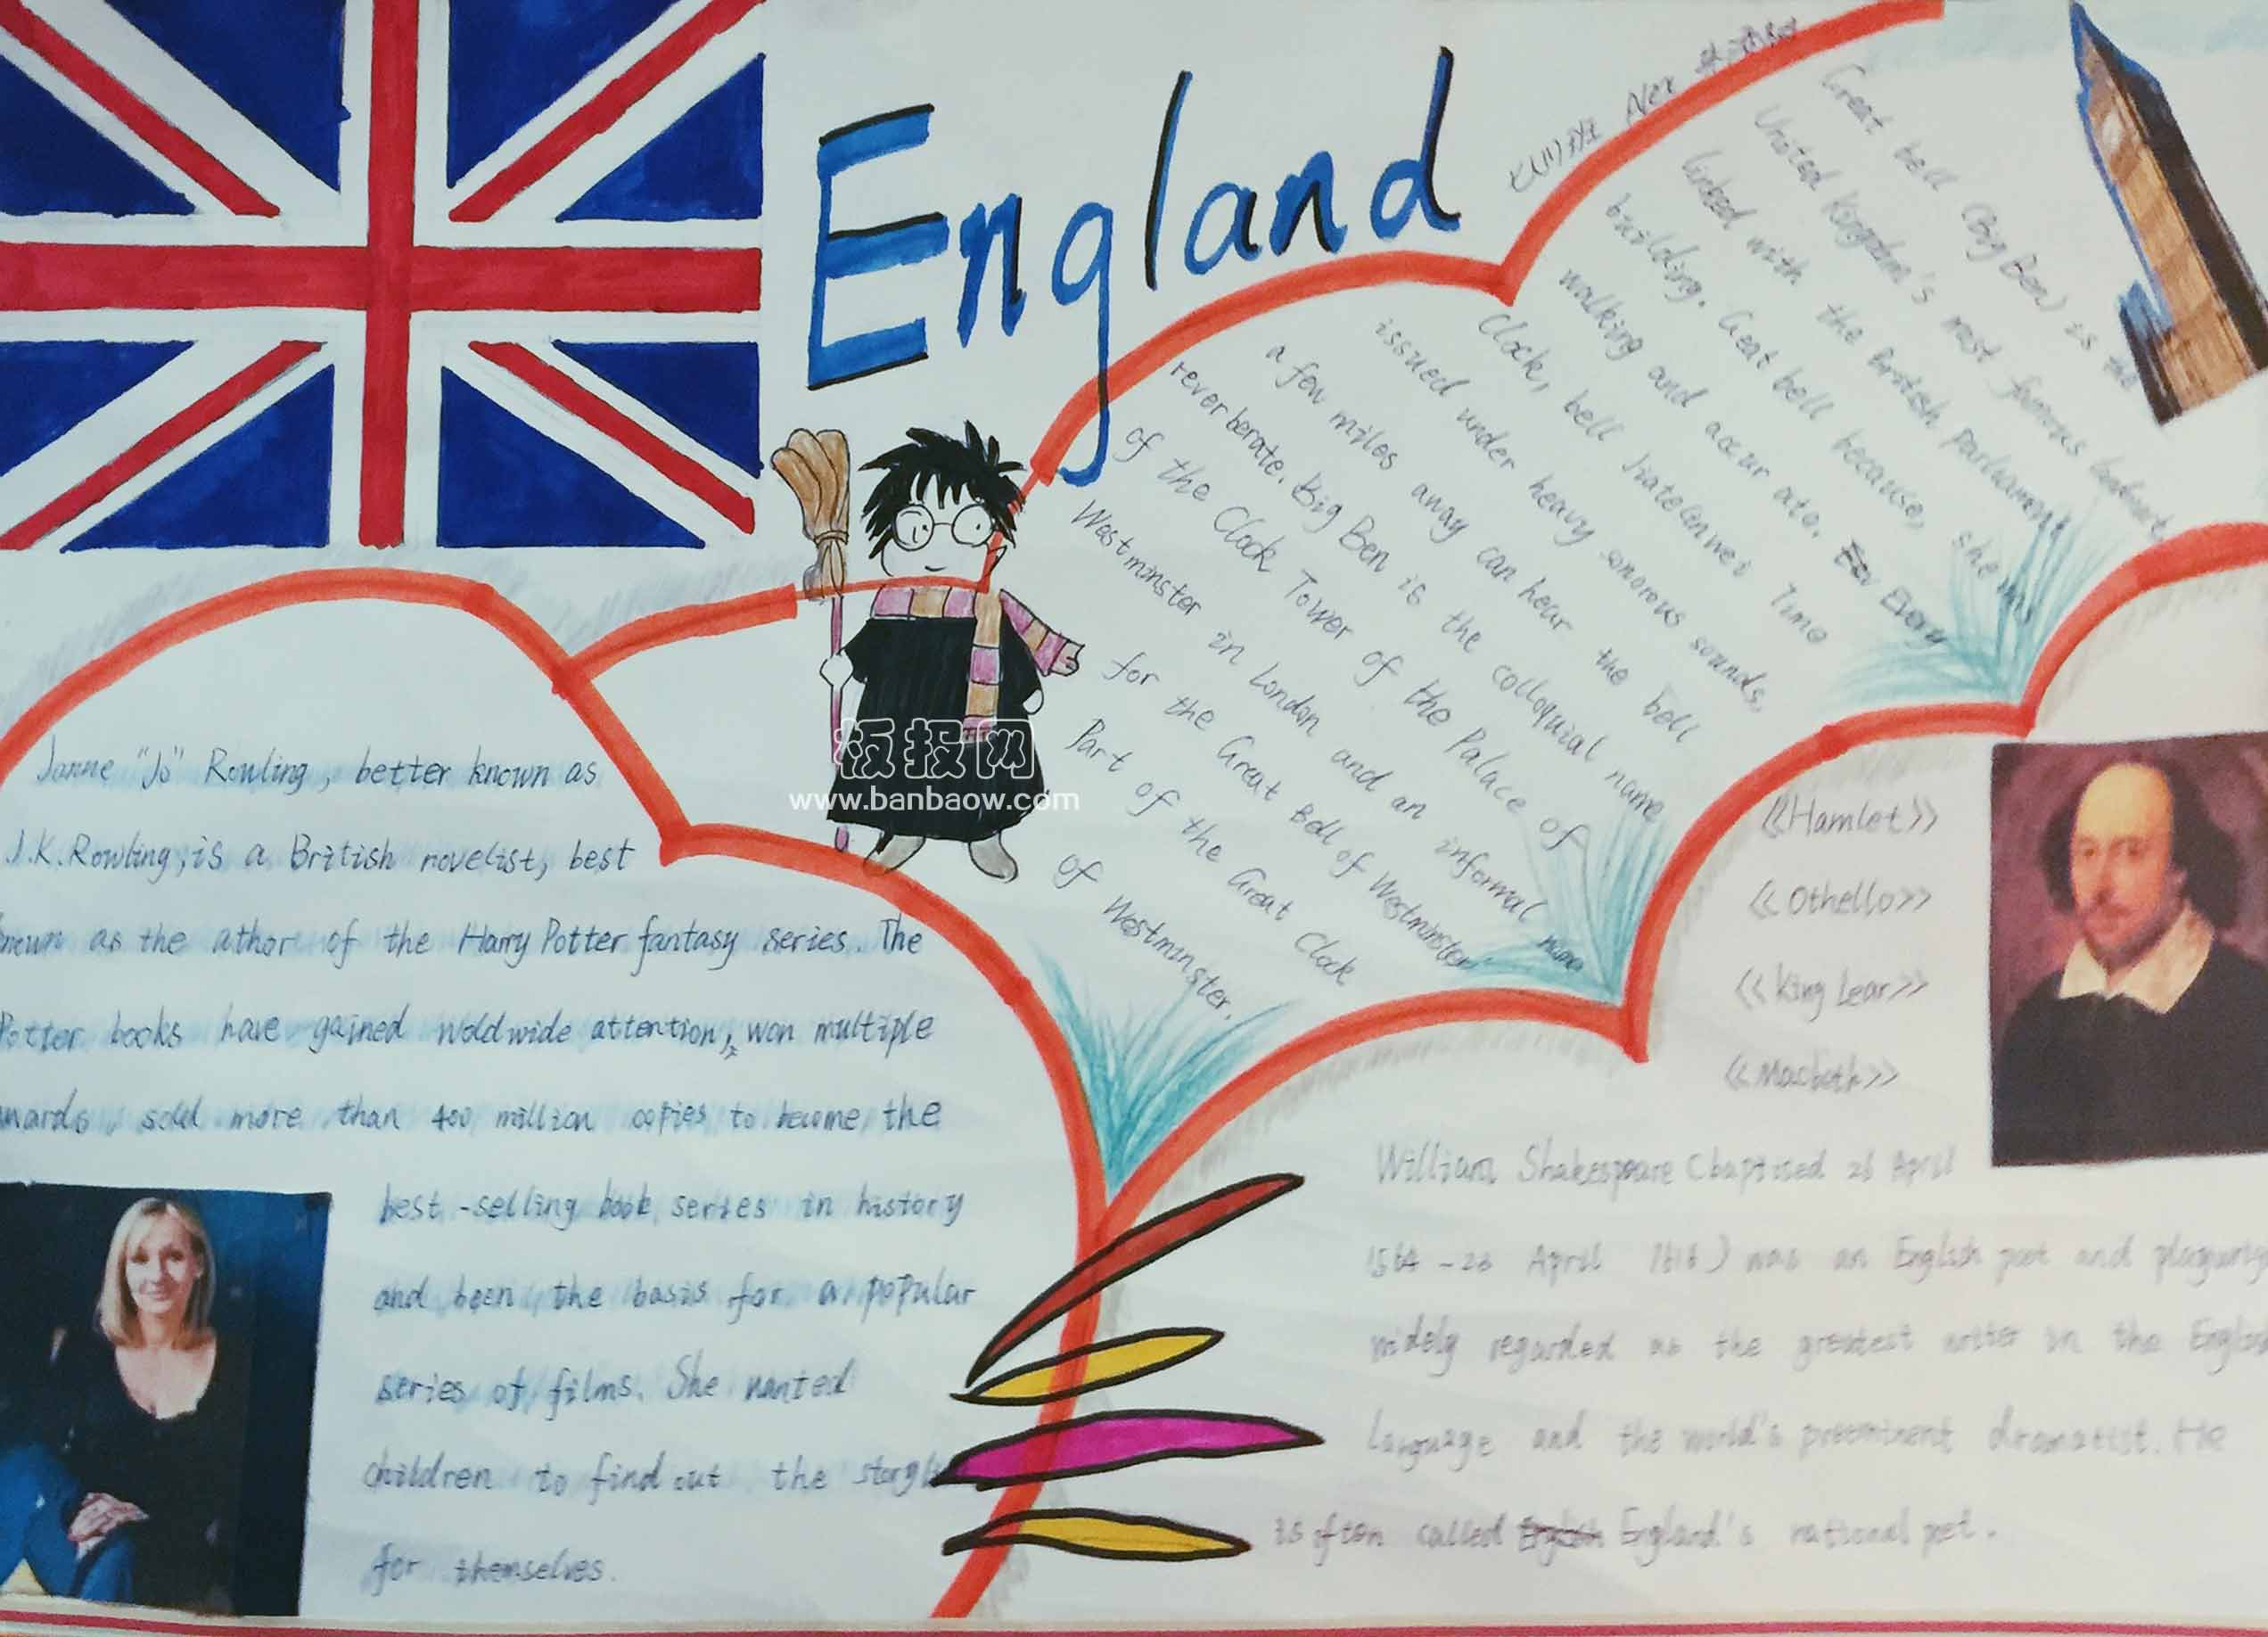 England
Great bell (Big Ben) is the
United Kingdom's most famous
linked with the British Parliament
building. Great bell because, she
walking and accur ate. Every
Clock, bell Time
issued under heavy sonorous sounds,
a few miles away can hear the bell
reverberate. Big Ben is the colloquial name
of the Clock Tower of the Palace of
Westminster in London and an informal name
for the Great Bell of Westminster
Part of the Great Clock
of Westminster.
Janne "Jo" Rowling, better known as
J.K.Rowling, is a British novelist, best
known as the athor of the Harry Potter fantasy series. The
Potter books have gained woldwide attention, won multiple
wards, sold more than 400 million copies to become the
best-selling book series in history
and been the basis for a popular
series of films. She wanted
children to find out the
for themselves.
板报网
www.banbaow.com
《Hamlet》
《Othello》
《King Lear》
《Macbeth》
William Shakespeare (baptised 26 April
1564-23 April 1616) was an English poet and
widely regarded as the greatest writer in the
Language and the world's preeminent dramatist. He
is often called England's national pet.